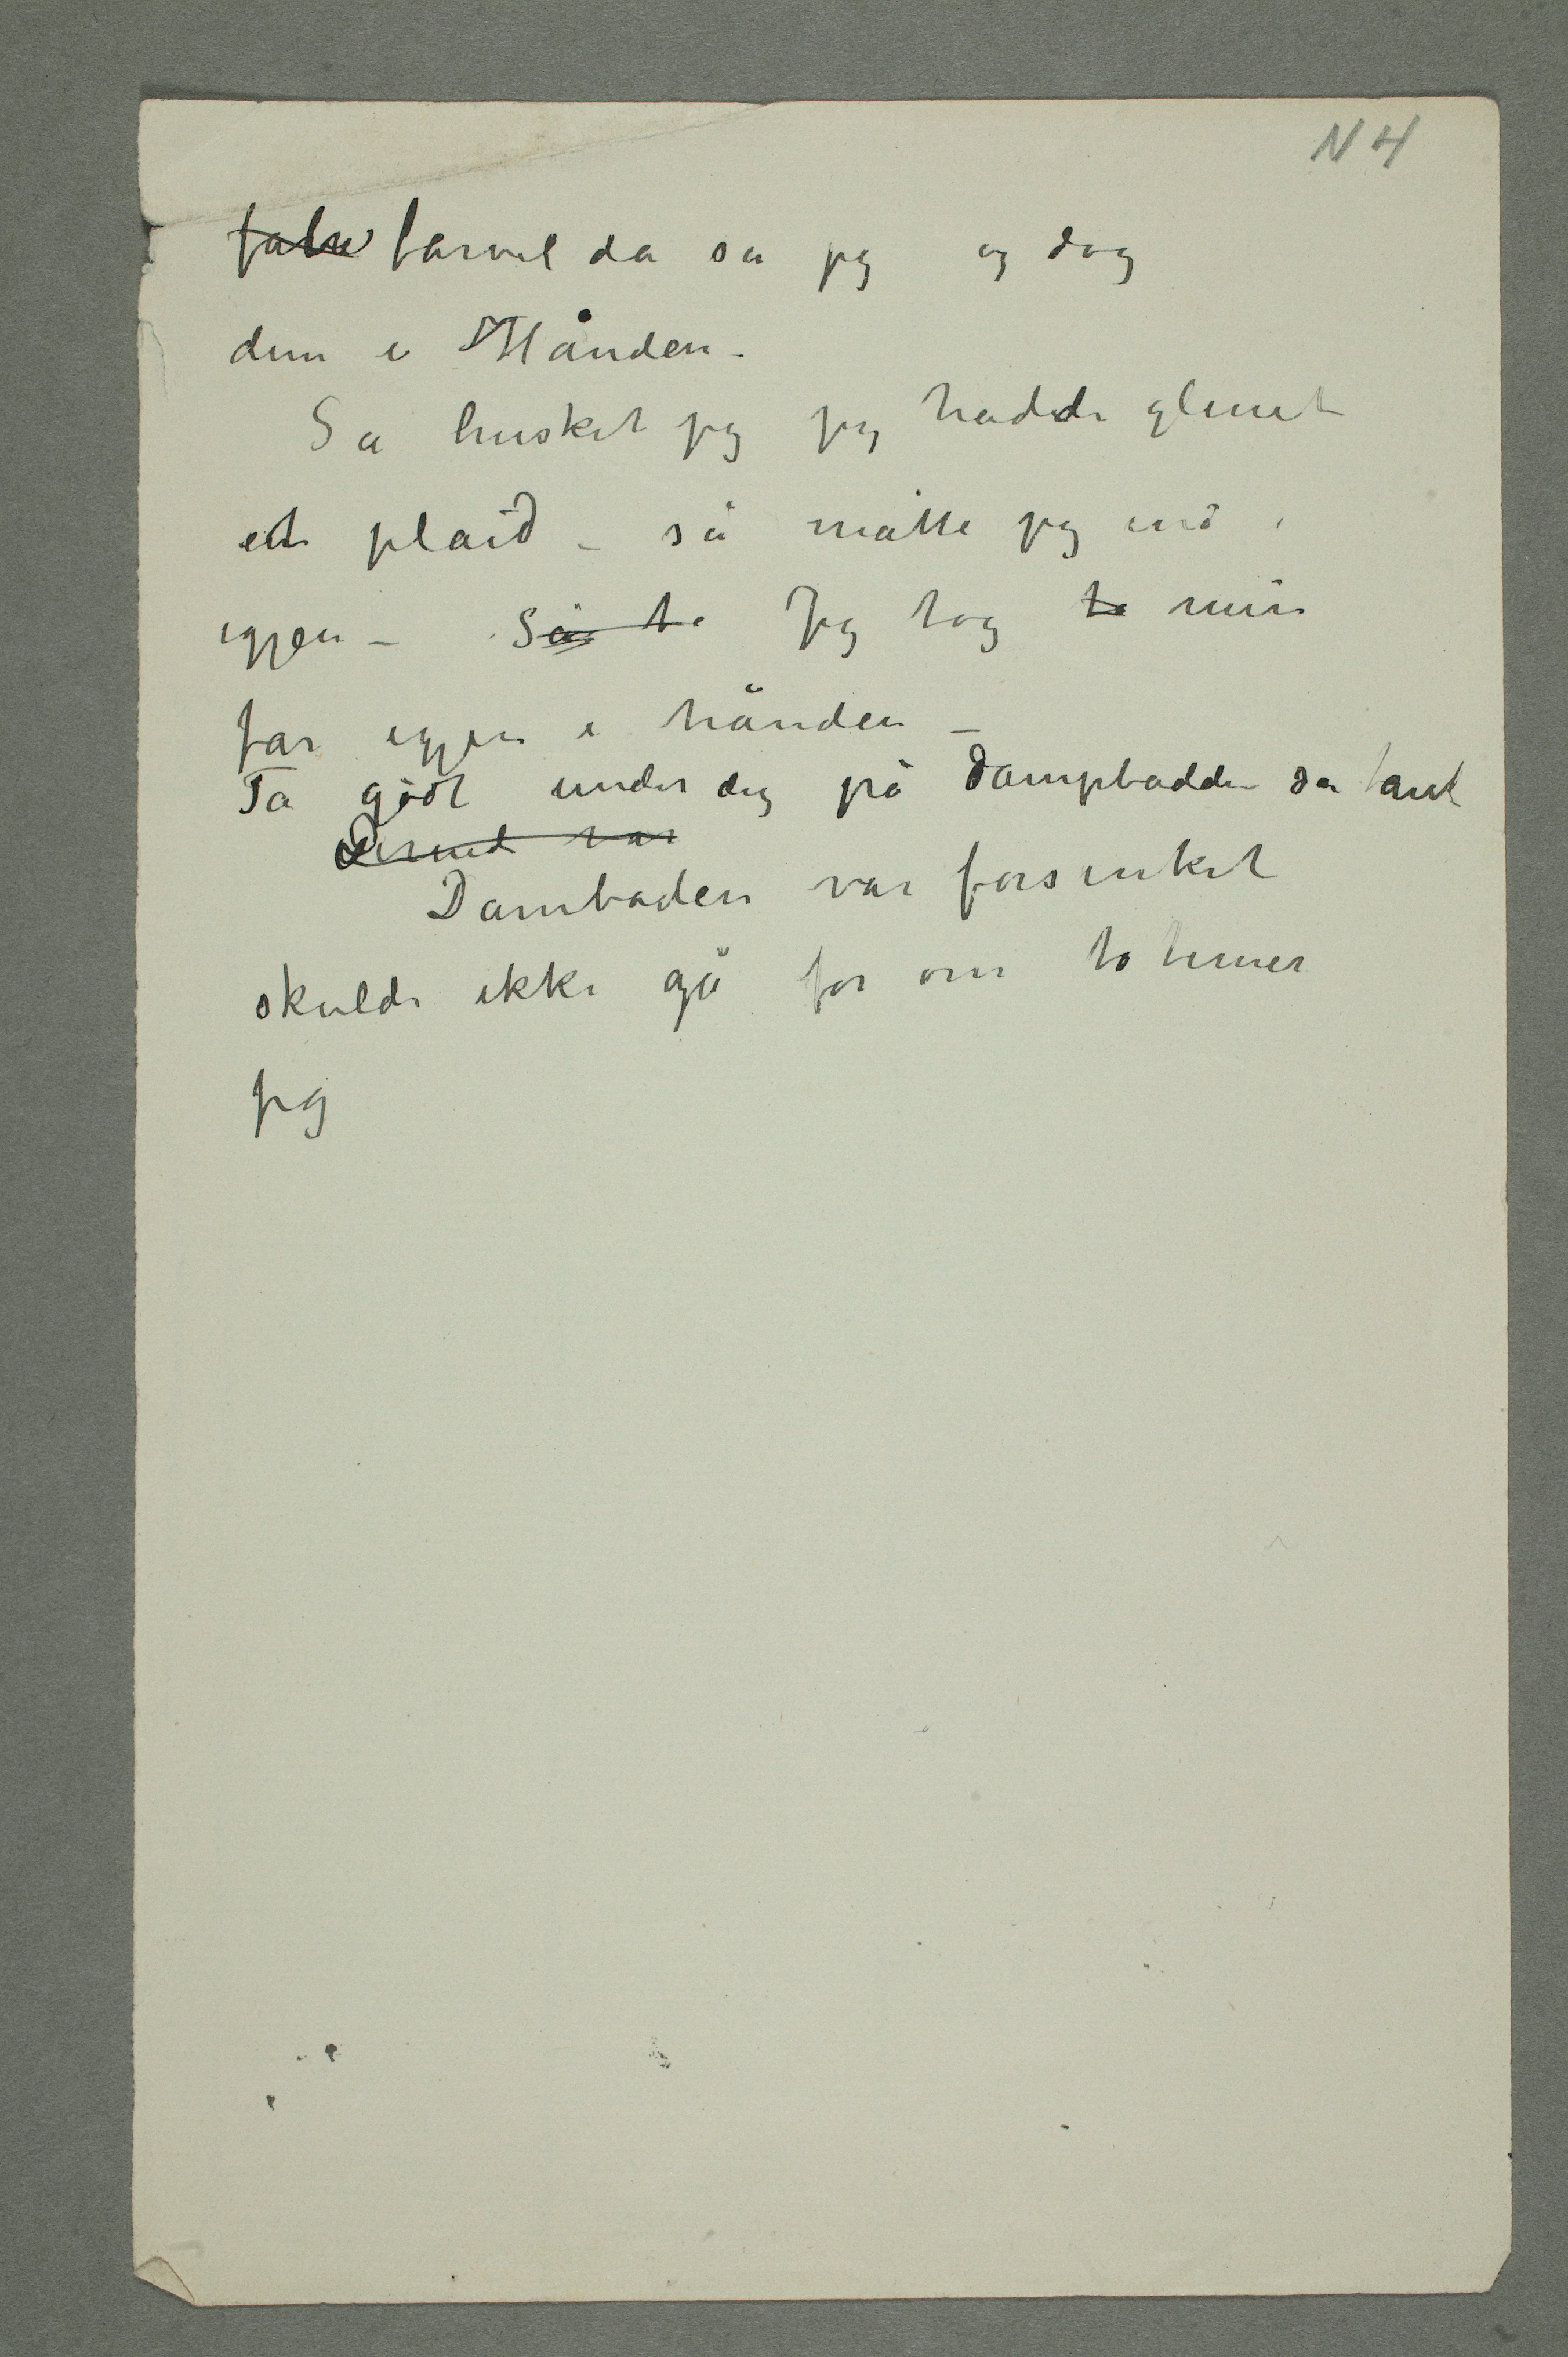 N 4
falv farvel da sa jeg og dog
dem i Hånden.
Så husket jeg jeg hadde glemt
et plaid – så måtte jeg ind i
igjen – Så to Jeg tog to min
far igjen i hånden –
Ta godt under dig på dampbådden sa tant
Dermed var
Dambåden var forsinket
skulde ikke gå før om to timer
jeg